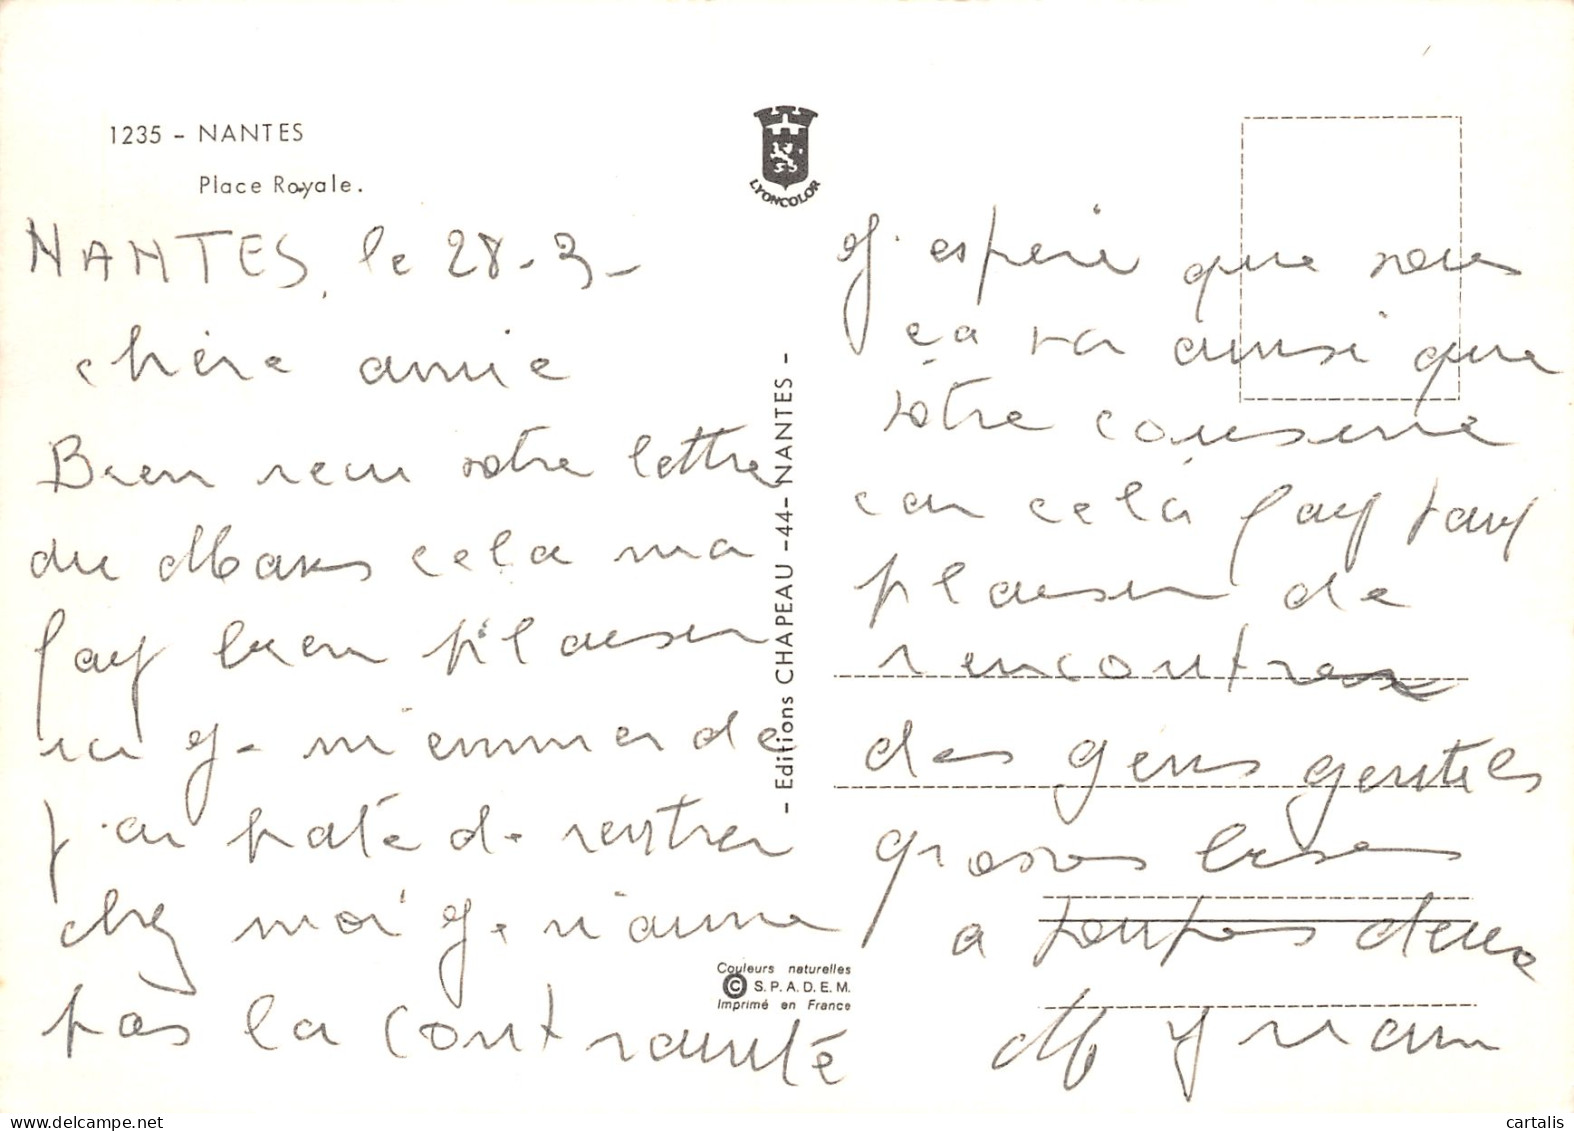 1235 - NANTES
Place Royale.
LYONCOLOR
NANTES, le 28-3-
chère amie
Bien recu votre lettre
du Mans cela ma
fait bien plaisir
ici je m'emmerde
j'ai hate de rentrer
chez moi je n'aime
pas la contrainté
- Editions CHAPEAU -44- NANTES -
Couleurs naturelles
© S.P.A.D.E.M.
Imprimé en France
J'espère que vous
ça va ainsi que
votre cousine
car celà fait tant
plaisir de
rencontrer
des gens gentils
grosses bises
a toutes deux